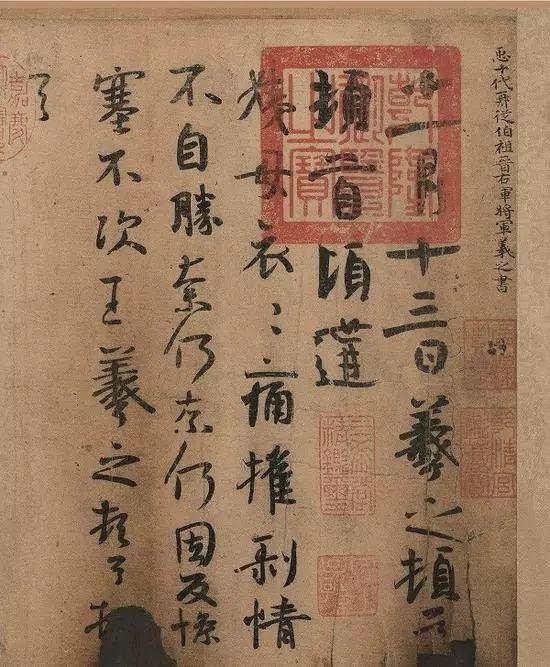 臣十代再從伯祖晉右軍將軍羲之書
一月十三日羲之頓首
頓首頃遘
姨母哀〻痛摧剝情
不自勝奈何奈何因反慘
塞不次王羲之頓首頓
首
乾隆御覽之寶
三希堂精鑑璽
宜子孫
嘉慶